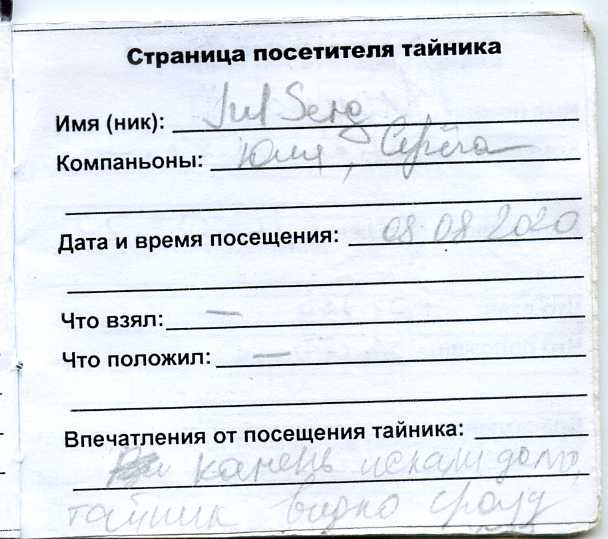 Страница посетителя тайника
Имя (ник): JulSerg
Компаньоны: Юля, Серёга
Дата и время посещения: 08 08 2020
Что взял: —
Что положил: —
Впечатления от посещения тайника:
камень искали долго,
тайник видно сразу